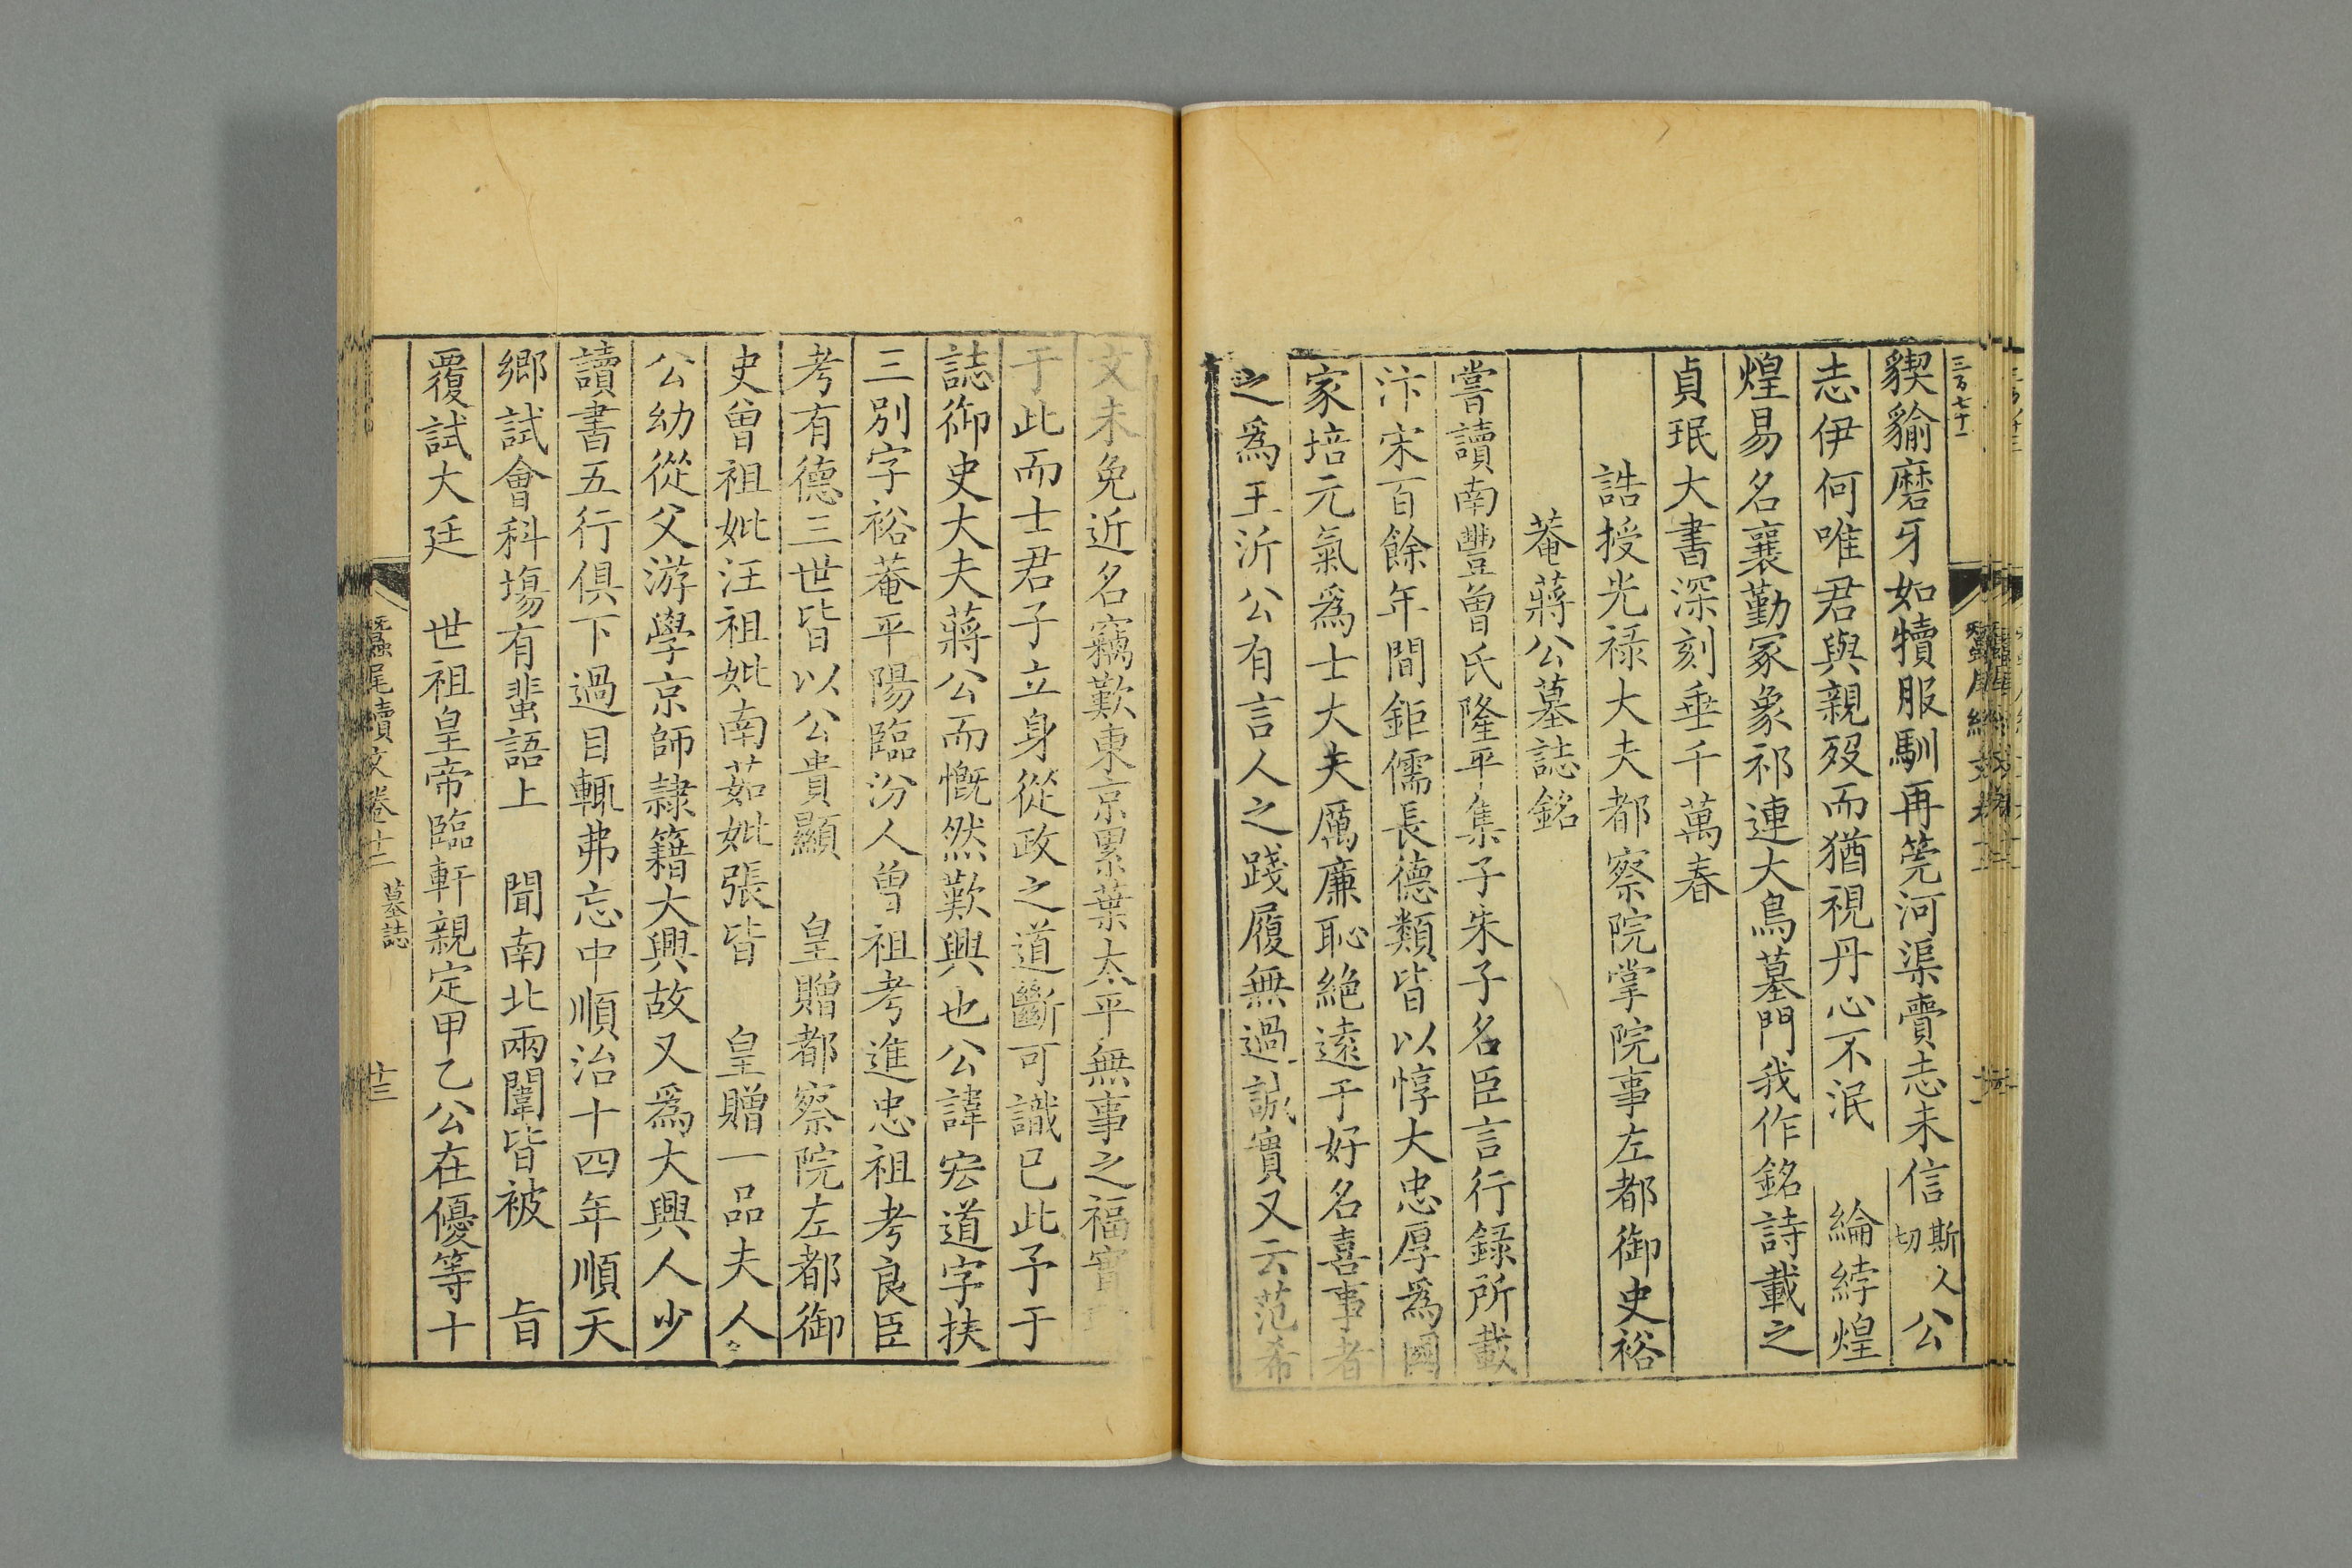 三百七十一
猰貐磨牙如犢服馴再筦河渠賷志未信斯人切公
志伊何唯君與親歿而猶視丹心不泯　綸綍煌
煌易名襄勤冢象祁連大鳥墓門我作銘詩載之
貞珉大書深刻垂千萬春
誥授光禄大夫都察院掌院事左都御史裕
菴蔣公墓誌銘
嘗讀南豐曾氏隆平集子朱子名臣言行錄所載
汴宋百餘年間鉅儒長德類皆以惇大忠厚爲國
家培元氣爲士大夫厲廉恥絶遠于好名喜事者
之爲王沂公有言人之踐履無過誠實又云范希
文未免近名竊歎東京累葉太平無事之福實
于此而士君子立身從政之道斷可識已此予于
誌御史大夫蔣公而慨然歎興也公諱宏道字扶
三别字裕菴平陽臨汾人曾祖考進忠祖考良臣
考有德三世皆以公貴顯　皇贈都察院左都御
史曾祖妣汪祖妣南茹妣張皆　皇贈一品夫人
公幼從父游學京師隷籍大興故又爲大興人少
讀書五行俱下過目輒弗忘中順治十四年順天
鄉試會科塲有蜚語上　聞南北兩闈皆被　旨
覆試大廷　世祖皇帝臨軒親定甲乙公在優等十
蠶尾續文卷十二　墓誌　廿三